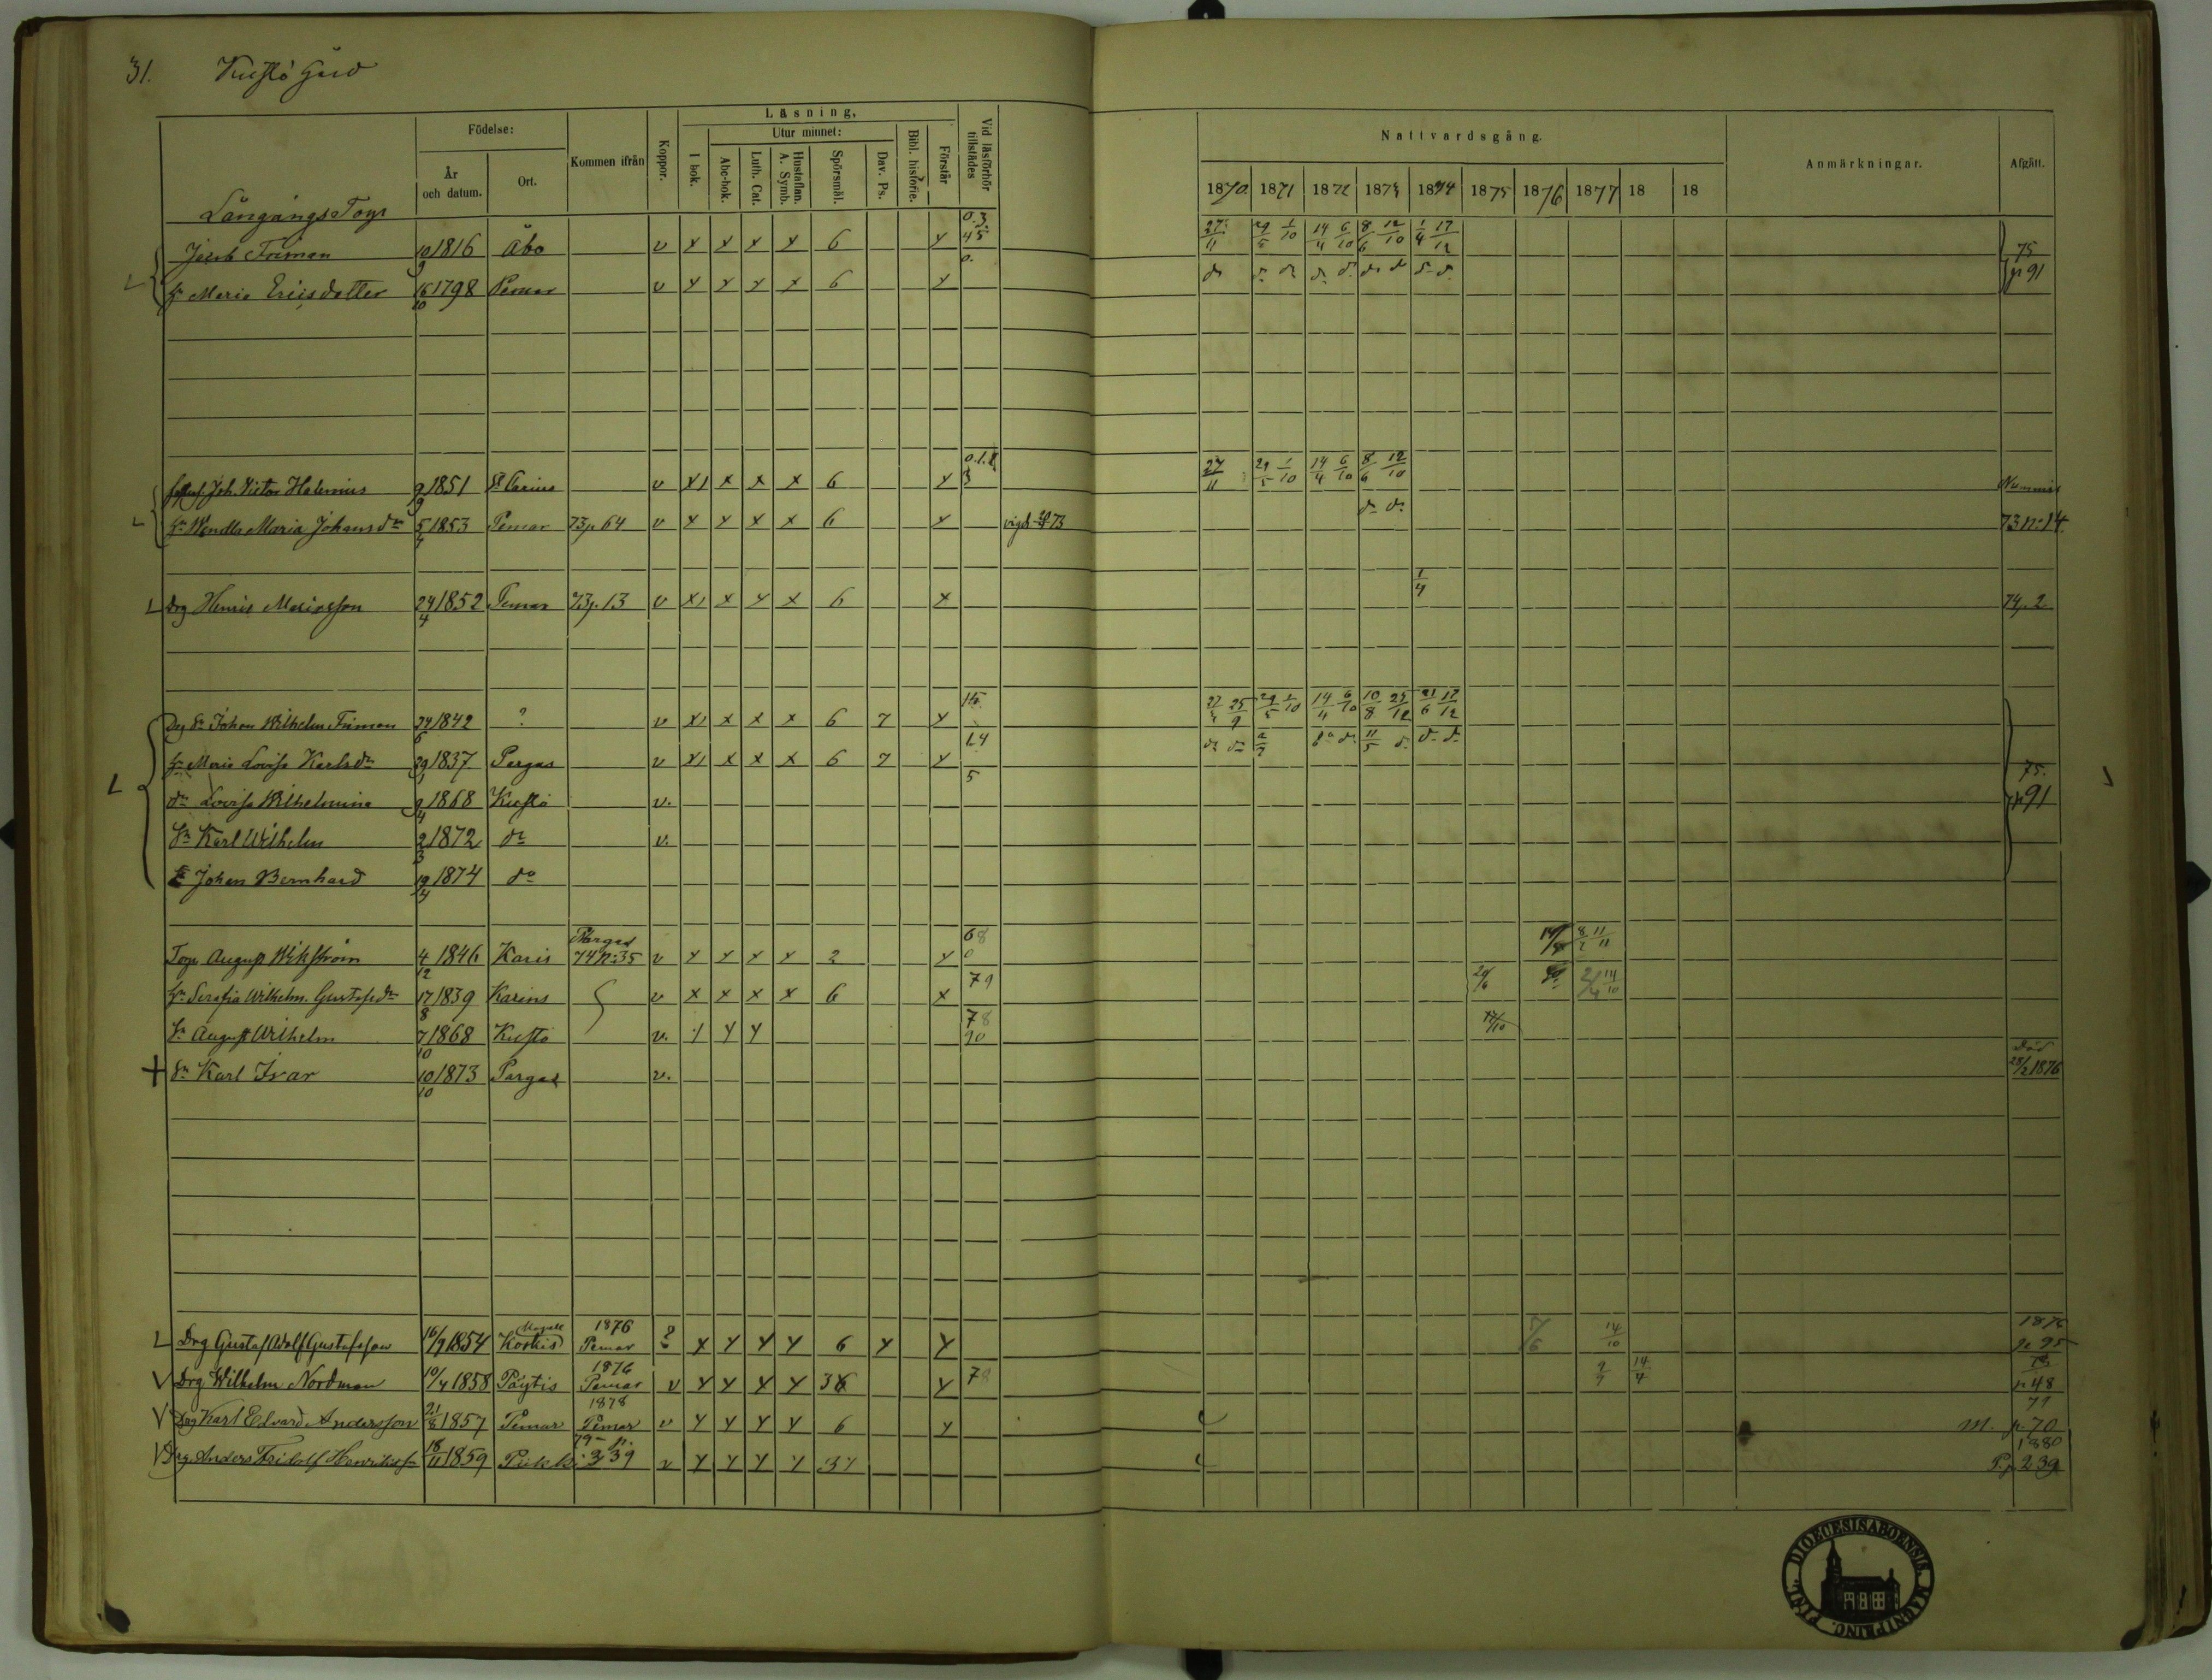 31. Kustö Gård
Födelse: År och datum. Ort. Kommen ifrån Koppor. Läsning, I bok. Utur minnet: Abc-bok. Luth. Cat. Hustaflan. A. Symb. Spörsmål. Dav. Ps. Bibl. historie. Förstår Vid läsförhör tillstädes Nattvardsgång. 1870 1871 1872 1873 1874 1875 1876 1877 18 18 Anmärkningar. Afgått.
Långångs Torp
Jacob Friman 10/9 1816 Åbo v x x x x 6 x 0.3. 45 27/11 29/5 1/10 14/4 6/10 8/6 12/10 1/4 17/12 75
Maria Ericsdotter 16/10 1798 Pemar v x x x x 6 x 0. p 91
Joh. Victor Halenius 9/9 1851 v x x x x 6 x 0.1. 3 27/11 29/5 1/10 14/4 6/10 8/6 12/10 Nummis
Wendla Maria Johansdr 5 1853 Pemar 73 p 64 v x x x x 6 x vigd 73 73 n: 14
Drg Henric 24/4 1852 Pemar 73 p. 13 v x x x x 6 x 1/4 74 p. 2
Drg Sn Johan Wilhelm Friman 24/6 1842 ? v x x x x 6 7 x 27 25/9 29/5 1/10 14/4 6/10 10/8 25/12 21/6 17/12
Maria Lovisa Karlsdr 29/1 1837 Pargas v x x x x 6 7 x 1.4 5 75.
dr Lovisa Wilhelmina 9/4 1868 Kustö v. p 91
Sn Karl Wilhelm 2/3 1872 do v.
Johan Bernhard 19/4 1874 do
Torp. August Wikström 4/12 1846 Karis Pargas 74 n: 35 v x x x x 2 x 68 0 8 11/11
Serafia Wilhelm. Gustafsdr 17/8 1839 Karins v x x x x 6 x 79 14/10
Sn August Wilhelm 7/10 1868 Kustö v. 78 90 17/10
+ Sn Karl Ivar 10/10 1873 Pargas v. Död 25/2 1876
Drg Gustaf Adolf Gustafsson 16/9 1854 Koskis 1876 Pemar ? x x x x 6 x x 14/10 1876 p. 95
Drg Wilhelm Nordman 10/4 1858 Påytis 1876 Pemar v x x x x x 78 14/4 p 48
Drg Karl Edvard Andersson 21/8 1857 Pemar 1878 Pemar v x x x x 6 x M. p. 70
Drg. Anders Fridolf Henriksson 18/11 1859 79 p. 239 v x x x x 1880 P. p. 239
DIOECESIS ABOENSIS. MAGNI PRINC. FINL.